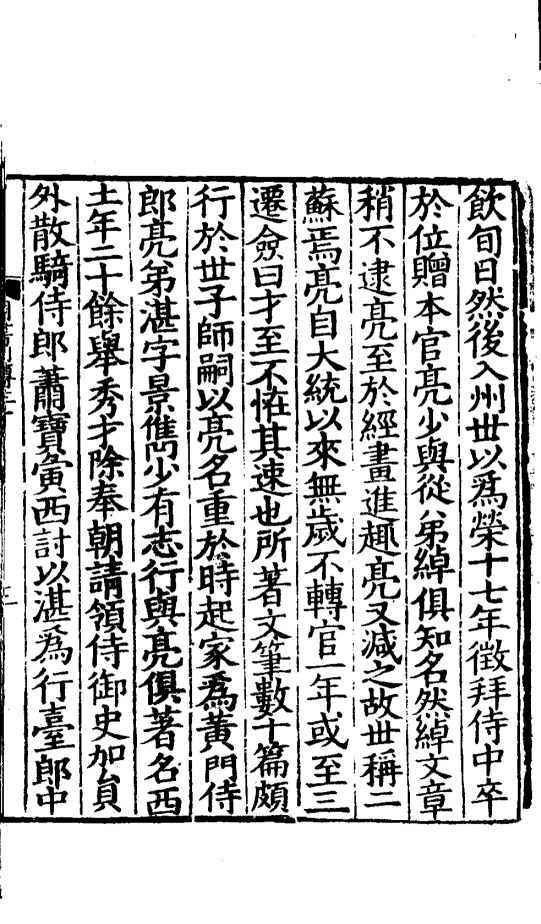 飲旬日然後入州世以爲榮十七年徵拜侍中卒
於位贈本官亮少與從弟綽俱知名然綽文章
稍不逮亮至於經畫進趣亮又減之故世稱二
蘇焉亮自大統以來無歲不轉官一年或至三
遷僉曰才至不恠其速也所著文筆數十篇頗
行於世子師嗣以亮名重於時起家爲黃門侍
郎亮弟湛字景儁少有志行與亮俱著名西
土年二十餘舉秀才除奉朝請領侍御史加員
外散騎侍郎蕭寶寅西討以湛爲行臺郎中